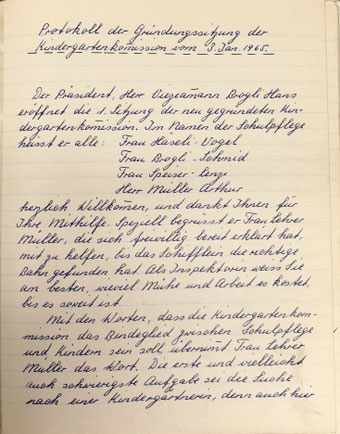 Protokoll der Gründungssitzung der
Kindergartenkomission vom 3. Jan. 1965.
Der Präsident, Herr Vizeamann Brogli Hans
eröffnet die 1. Sitzung der neu gegründeten Kin-
dergartenkomission. Im Namen der Schulpflege
heisst er alle: Frau Häseli-Vogel
Frau Brogli-Schmid
Frau Speiser-Lenze
Herr Müller Arthur
herzlich Willkommen, und dankt Ihnen für
Ihre Mithilfe. Speziell begrüsst er Frau Lehrer
Müller, die sich freiwillig bereit erklärt hat,
mit zu helfen, bis das Schifflein die richtige
Bahn gefunden hat. Als Inspektorin weiss Sie
am besten, wieviel Mühe und Arbeit es kostet,
bis es soweit ist.
Mit den Worten, dass die Kindergartenkom-
mission das Bindeglied zwischen Schulpflege
und Kindern sein soll, übernimt Frau Lehrer
Müller das Wort. Die erste und vielleicht
auch schwierigste Aufgabe sei die Suche
nach einer Kindergärtnerin, denn auch hier